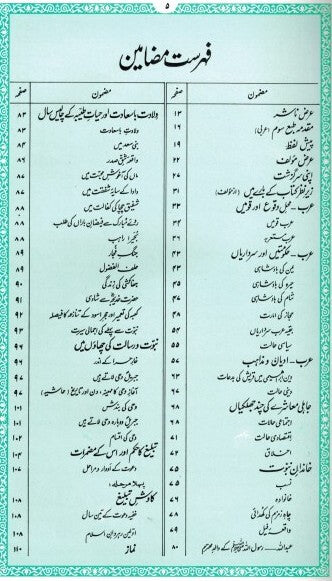 ۵
فہرست مضامین
مضمون صفحہ
عرض ناشر ۱۳
مقدمہ طبع سوم (عربی) ۱۶
پیش لفظ ۱۹
عرض مؤلف ۲۲
اپنی سرگزشت ۲۴
زیر نظر کتاب کے بارے میں (از مؤلف)
عرب - محل وقوع اور قومیں
عرب قومیں
عرب مستعربہ
عرب - حکومتیں اور سرداریاں ۴۳
یمن کی بادشاہی ۴۳
حیرہ کی بادشاہی
شام کی بادشاہی
حجاز کی امارت ۴۸
بقیہ عرب سرداریاں ۵۴
سیاسی حالت ۵۵
عرب - ادیان و مذاہب ۵۷
دین ابراہیمی میں قریش کی بدعات
جاہلی معاشرے کی چند جھلکیاں ۶۸
اجتماعی حالات ۶۸
اقتصادی حالت ۷۱
اخلاق ۷۲
خاندان نبوت ۷۵
نسب ۷۵
خانوادہ ۷۶
چاہ زمزم کی کھدائی ۷۸
واقعہ فیل ۷۹
عبداللہ - رسول اللہ ﷺ کے والد محترم ۸۰
مضمون صفحہ
ولادت باسعادت اور حیات طیبہ کے چالیس سال ۸۳
ولادت باسعادت ۸۳
بنی سعد میں
واقعہ شق صدر
ماں کی آغوش محبت میں
دادا کے سایۂ شفقت میں
شفیق چچا کی کفالت میں ۸۸
روئے مبارک سے فیضان باراں کی طلب ۸۸
بحیرا راہب
جنگ فجار
حلف الفضول ۸۹
جفاکشی کی زندگی ۹۰
حضرت خدیجہؓ سے شادی ۹۱
کعبہ کی تعمیر اور حجر اسود کے تنازعہ کا فیصلہ ۹۲
نبوت سے پہلے کی اجمالی سیرت ۹۴
نبوت و رسالت کی چھاؤں میں ۹۶
غار حرا کے اندر
جبریلؑ وحی لاتے ہیں ۹۷
آغاز وحی کا مہینہ، دن اور تاریخ (حاشیہ) ۹۷
وحی کی بندش ۱۰۱
جبریلؑ دوبارہ وحی لاتے ہیں
وحی کی اقسام ۱۰۲
تبلیغ کا حکم اور اس کے مضمرات ۱۰۴
دعوت کے ادوار و مراحل ۱۰۷
پہلا مرحلہ:
کاوش تبلیغ ۱۰۸
خفیہ دعوت کے تین سال ۱۰۸
اولین رہروان اسلام ۱۰۸
نماز ۱۱۰